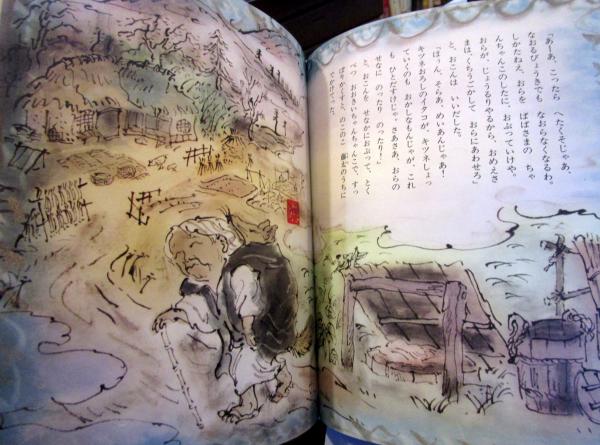 「あーあ、こったら へたくそじゃあ、
なおるびょうきでも なおらなくなるわ。
しかたねえ、おらを ばばさまの ちゃ
んちゃんこのしたに、おぶっていけや。
おらが、じょうるりやるから、おめえさ
まは、くちうごかして おらにあわせろ」
と、おこんは いいだした。
「ほっん、そらあ、めいあんじゃあ！
キツネおろしのイタコが、キツネしょっ
ていくのも、おかしなもんじゃが、これ
も ひとだすけじゃ。さあさあ、おらの
せなに のったり のったり！」
と、おこんを せなかにおぶって、とく
べつ おおきいちゃんちゃんこで、すっ
ぽりかくすと、のこのこ 藤太のうちに
でかけてった。